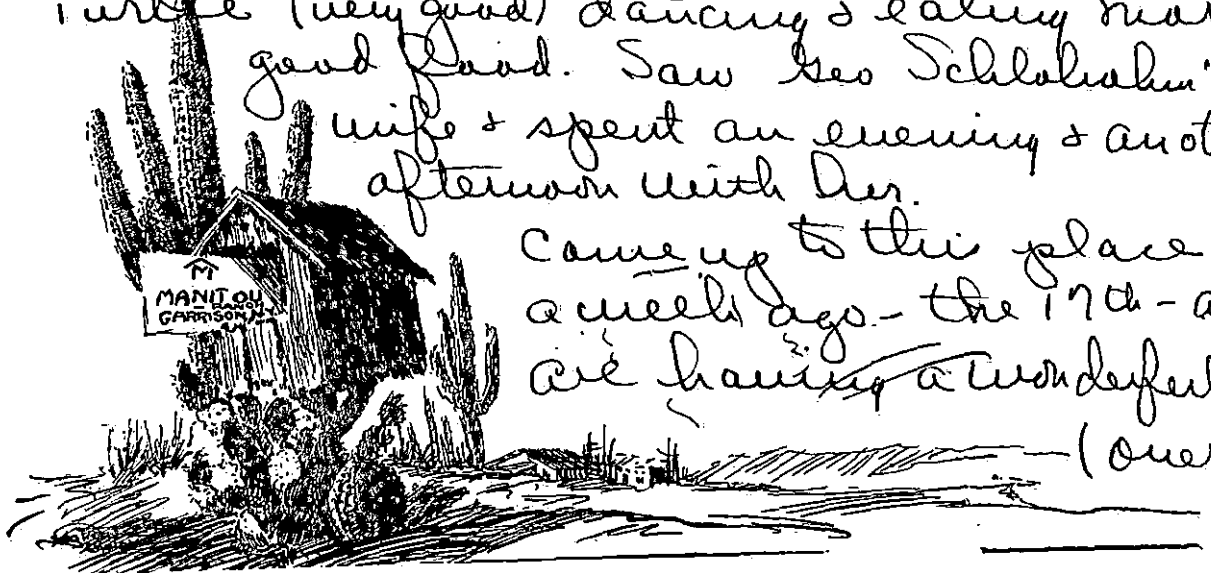 Turtle (very good) dancing & eating
good food. Saw Geo
wife & spent an evening & anot
afternoon with her.
Came up to this place
a week ago - the 17th - a
are having a wonderful
(over
M
MANITOU
RANCH
GARRISON, N.Y.